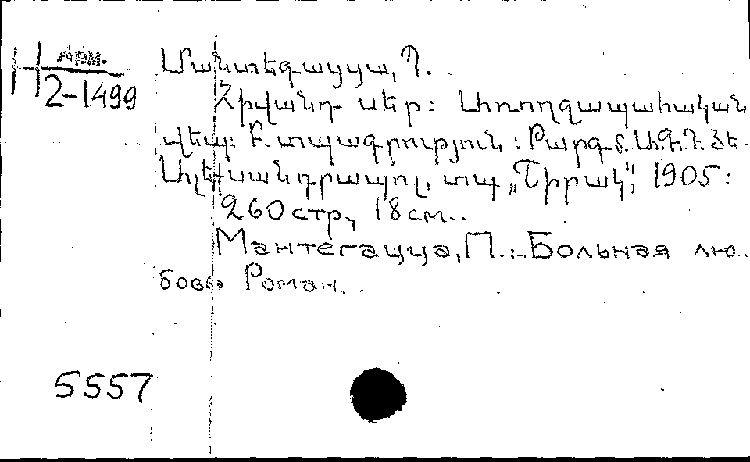 Н арм.
2-1499
Մանտեգացցա, Պ.
Հիվանդ սեր: Առողջապահական
վեպ: Բ. տպագրություն: Թարգմ.
Ալեքսանդրապոլ, տպ. „Շիրակ", 1905:
260 стр., 18 см..
Мантегацца, П.: Больная лю-
бовь Роман.
5557